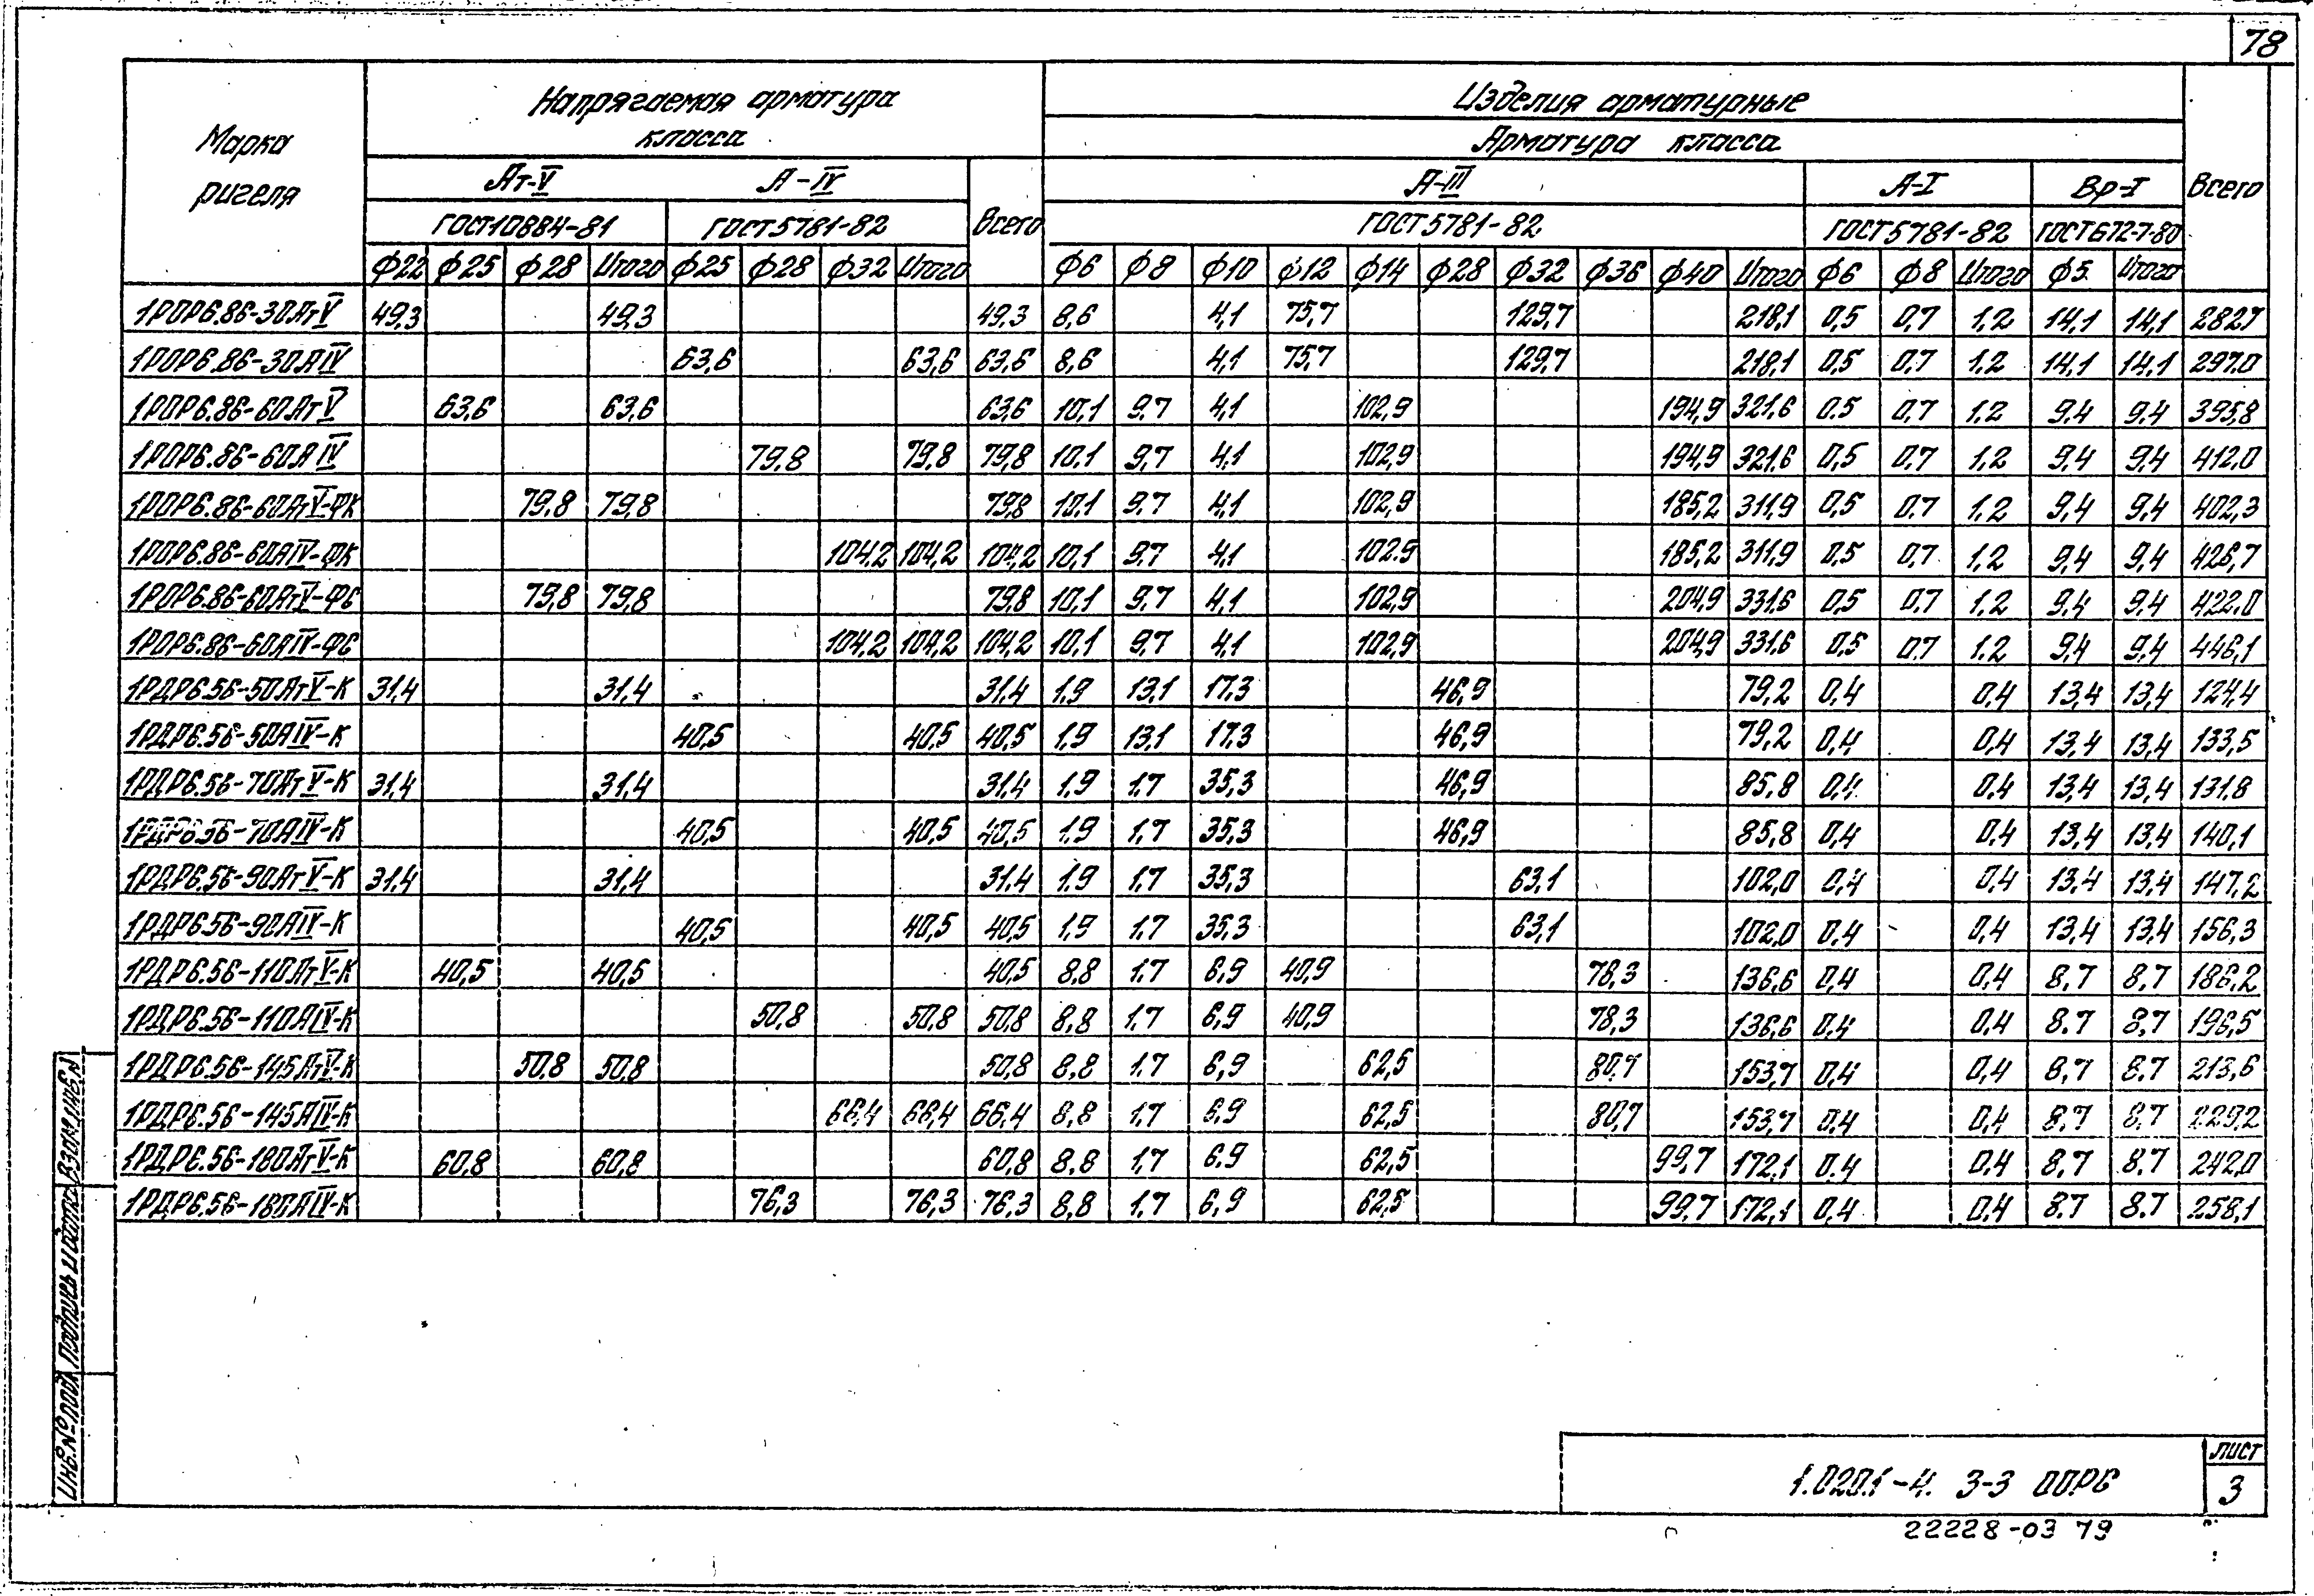 78
Марка ригеля | Напрягаемая арматура класса | Изделия арматурные | Всего
Арматура класса
Ат-V | А-IV | Всего | А-III | А-I | Вр-I
ГОСТ10884-81 | ГОСТ5781-82 | ГОСТ5781-82 | ГОСТ5781-82 | ГОСТ6727-80
ф22 ф25 ф28 Итого ф25 ф28 ф32 Итого ф6 ф8 ф10 ф12 ф14 ф28 ф32 ф36 ф40 Итого ф6 ф8 Итого ф5 Итого
1РОР6.86-30АтV 49,3 49,3 49,3 8,6 4,1 75,7 129,7 218,1 0,5 0,7 1,2 14,1 14,1 282,7
1РОР6.86-30АIV 63,6 63,6 63,6 8,6 4,1 75,7 129,7 218,1 0,5 0,7 1,2 14,1 14,1 297,0
1РОР6.86-60АтV 63,6 63,6 63,6 10,1 9,7 4,1 102,9 194,9 321,6 0,5 0,7 1,2 9,4 9,4 395,8
1РОР6.86-60АIV 79,8 79,8 79,8 10,1 9,7 4,1 102,9 194,9 321,6 0,5 0,7 1,2 9,4 9,4 412,0
1РОР6.86-60АтV-ФК 79,8 79,8 79,8 10,1 9,7 4,1 102,9 185,2 311,9 0,5 0,7 1,2 9,4 9,4 402,3
1РОР6.86-60АIV-ФК 104,2 104,2 104,2 10,1 9,7 4,1 102,9 185,2 311,9 0,5 0,7 1,2 9,4 9,4 426,7
1РОР6.86-60АтV-ФС 79,8 79,8 79,8 10,1 9,7 4,1 102,9 204,9 331,6 0,5 0,7 1,2 9,4 9,4 422,0
1РОР6.86-60АIV-ФС 104,2 104,2 104,2 10,1 9,7 4,1 102,9 204,9 331,6 0,5 0,7 1,2 9,4 9,4 446,1
1РДР6.56-50АтV-К 31,4 31,4 31,4 1,9 13,1 17,3 46,9 79,2 0,4 0,4 13,4 13,4 124,4
1РДР6.56-50АIV-К 40,5 40,5 40,5 1,9 13,1 17,3 46,9 79,2 0,4 0,4 13,4 13,4 133,5
1РДР6.56-70АтV-К 31,4 31,4 31,4 1,9 1,7 35,3 46,9 85,8 0,4 0,4 13,4 13,4 131,8
1РДР6.56-70АIV-К 40,5 40,5 40,5 1,9 1,7 35,3 46,9 85,8 0,4 0,4 13,4 13,4 140,1
1РДР6.56-90АтV-К 31,4 31,4 31,4 1,9 1,7 35,3 63,1 102,0 0,4 0,4 13,4 13,4 147,2
1РДР6.56-90АIV-К 40,5 40,5 40,5 1,9 1,7 35,3 63,1 102,0 0,4 0,4 13,4 13,4 156,3
1РДР6.56-110АтV-К 40,5 40,5 40,5 8,8 1,7 6,9 40,9 78,3 136,6 0,4 0,4 8,7 8,7 186,2
1РДР6.56-110АIV-К 50,8 50,8 50,8 8,8 1,7 6,9 40,9 78,3 136,6 0,4 0,4 8,7 8,7 196,5
1РДР6.56-145АтV-К 50,8 50,8 50,8 8,8 1,7 6,9 62,5 80,7 153,7 0,4 0,4 8,7 8,7 213,6
1РДР6.56-145АIV-К 66,4 66,4 66,4 8,8 1,7 6,9 62,5 80,7 153,7 0,4 0,4 8,7 8,7 229,2
1РДР6.56-180АтV-К 60,8 60,8 60,8 8,8 1,7 6,9 62,5 99,7 172,1 0,4 0,4 8,7 8,7 242,0
1РДР6.56-180АIV-К 76,3 76,3 76,3 8,8 1,7 6,9 62,5 99,7 172,1 0,4 0,4 8,7 8,7 258,1
Инв.№ подл. Подпись и дата Взам.инв.N
1.020.1-4. 3-3 00РС
Лист
3
22228-03 79